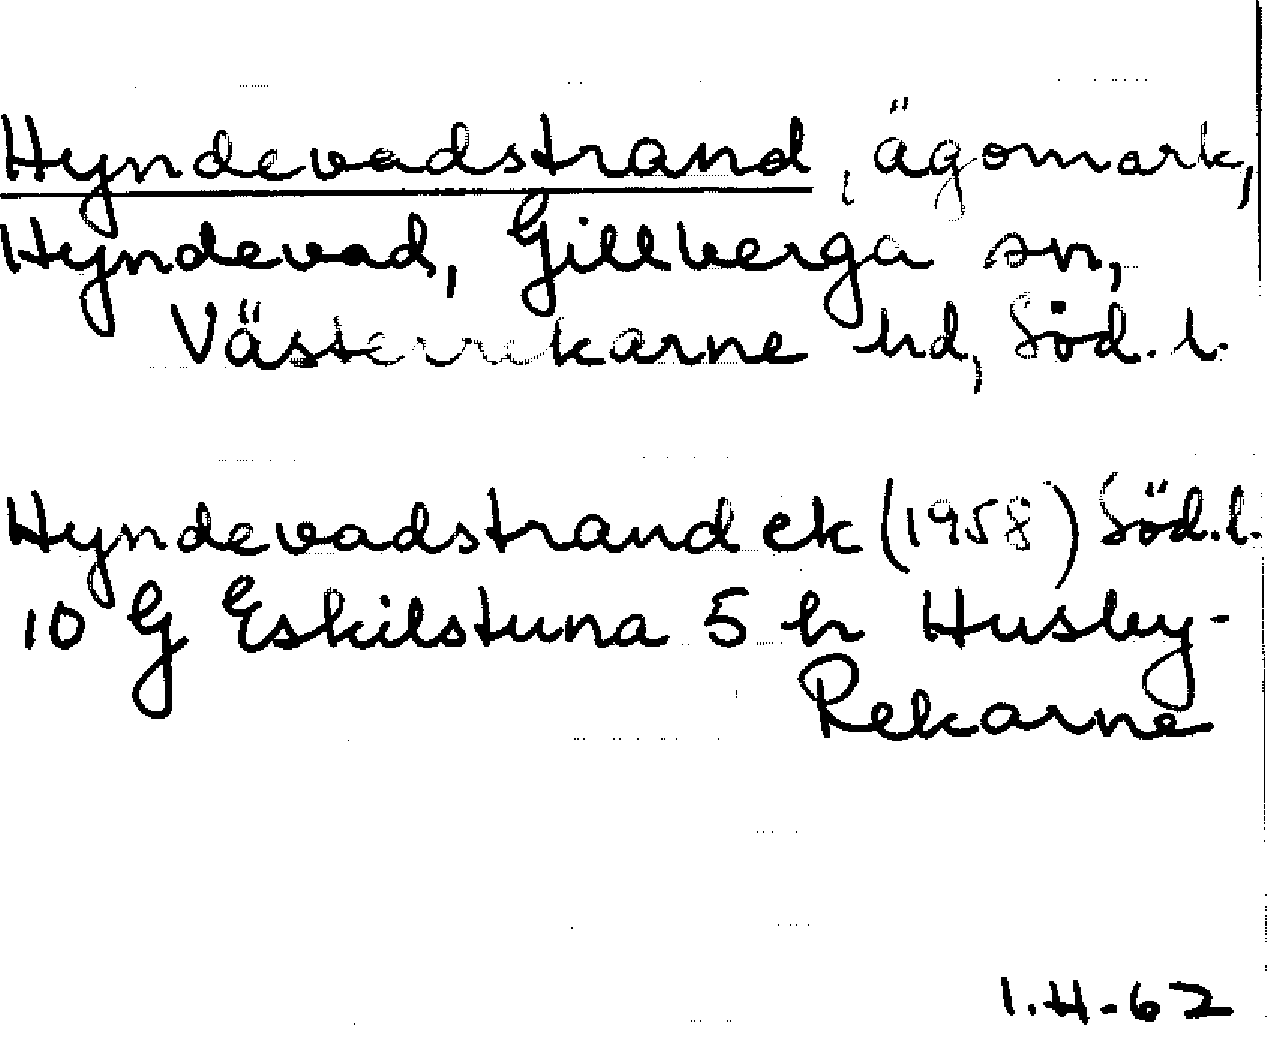 Hyndevadstrand, ägomark,
Hyndevad, Gillberga sn,
Västerrekarne hd, Söd. l.
Hyndevadstrand ek (1958) Söd. l.
10 G Eskilstuna 5 h Husby-
Rekarne
I.H-62